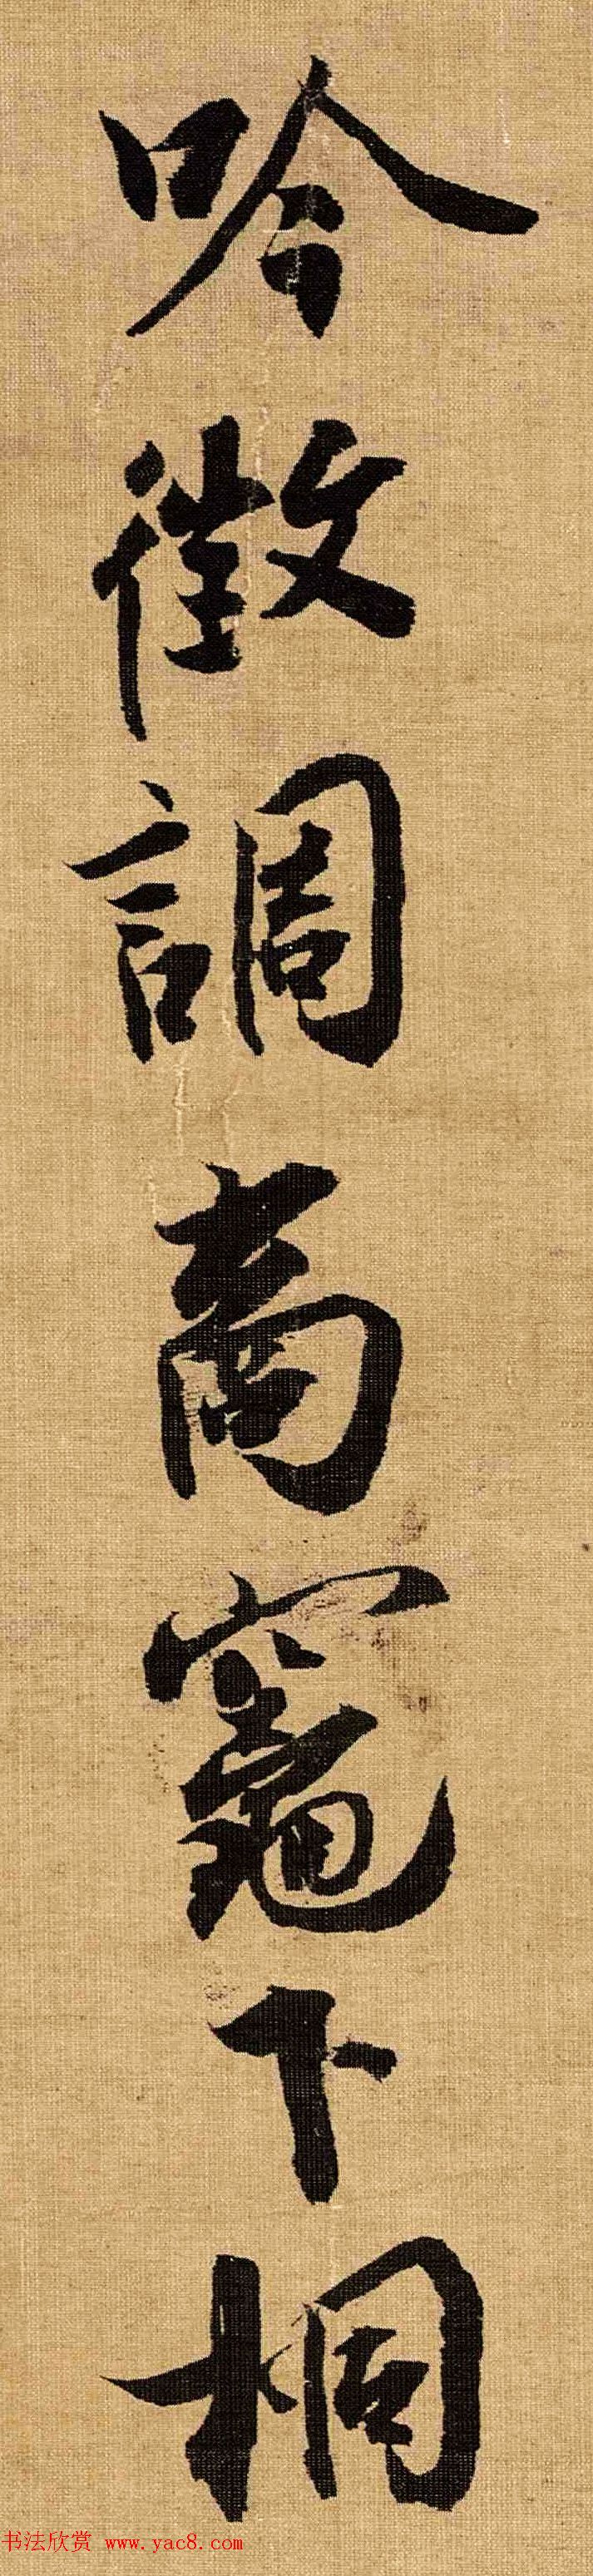 吟徵調商竈下桐
书法欣赏 www.yac8.com